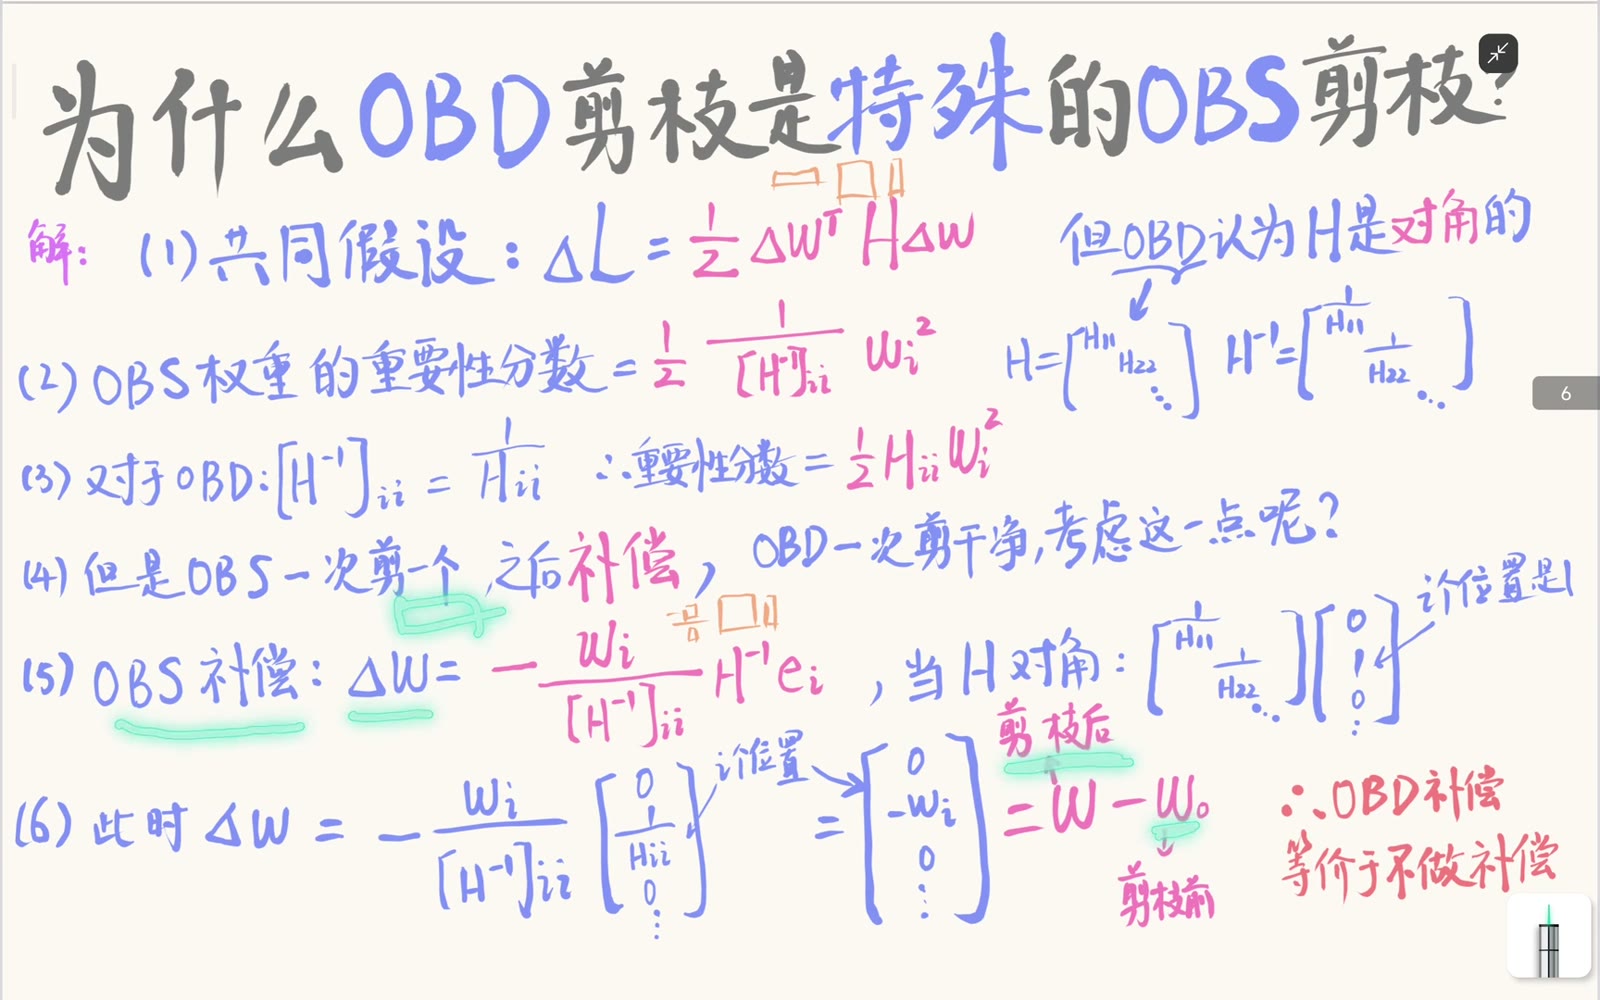 为什么OBD剪枝是特殊的OBS剪枝?
解: (1) 共同假设: ΔL = 1/2 Δw^T H Δw 但OBD认为H是对角的
(2) OBS权重的重要性分数 = 1/2 1/[H^-1]ii wi^2 H = [H11 H22 ⋱] H^-1 = [1/H11 1/H22 ⋱]
6
(3) 对于OBD: [H^-1]ii = 1/Hii ∴重要性分数 = 1/2 Hii Wi^2
(4) 但是OBS一次剪一个,之后补偿, OBD一次剪干净,考虑这一点呢?
(5) OBS补偿: ΔW = - Wi/[H^-1]ii H^-1 ei , 当H对角: [1/H11 1/H22 ⋱] [0 1 0 ⋮] i个位置是1
(6) 此时 ΔW = - Wi/[H^-1]ii [0 1/Hii 0 ⋮] i个位置 = [0 -Wi 0 ⋮] = W - W0
剪枝后
剪枝前
∴OBD补偿
等价于不做补偿